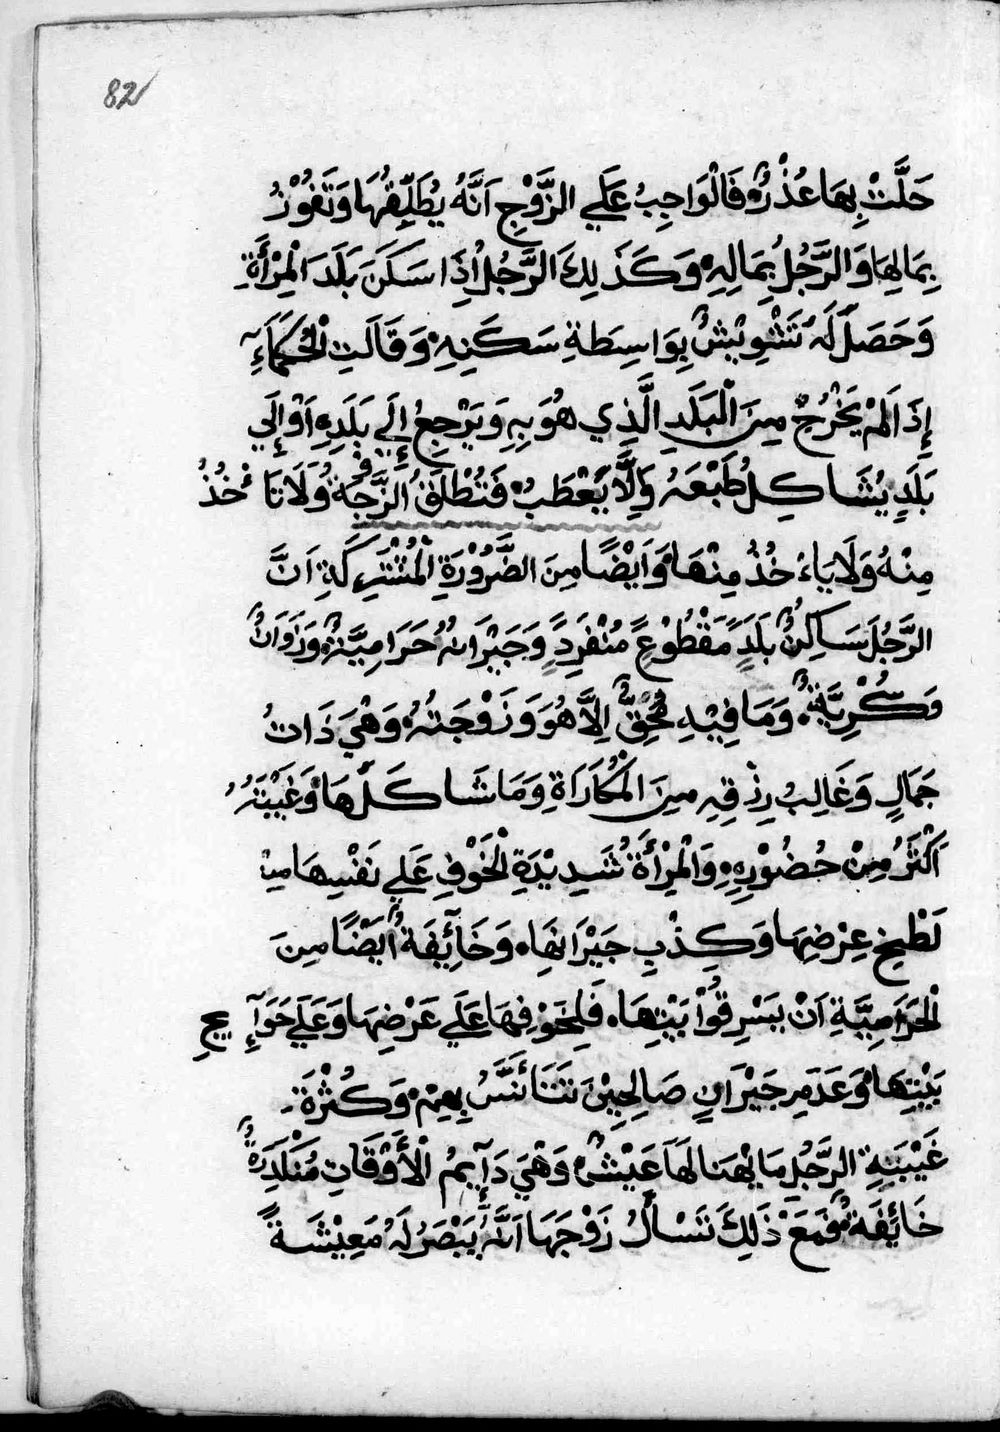 82
حَلَّتْ بِهَا عُذْرٌ، فَالْوَاجِبُ عَلَي الزَّوْجِ اَنَّهُ يُطَلِّقُهَا وَتَفُوْزُ
بِمَالِهَا وَالرَّجُلُ بِمَالِهِ، وَكَذَلِكَ الرَّجُلُ اِذَا سَكَنَ بَلَدَ الْمِرْأَةِ
وَحَصَلَ لَهُ تَشْوِيْشٌ بِوَاسِطَةِ سَكَنِهِ، وَقَالَتِ لْحُكَمَآءِ
إِذَ الَمْ يَخْرُجْ مِنَ الْبَلَدِ الَّذِي هُوَ بِهِ وَيَرْجِعُ إِلَي بَلَدِهِ اَوْ إِلَي
بَلَدٍ يُشَاكِلُ طَبْعَهُ وَإِلَّا يَعْطَبُ، فَتُطْلَقُ الزَّوْجَةُ وَلَا تَاءْخُذُ
مِنْهُ وَلَا يَاءْخُذُ مِنْهَا، وَاَيْضًا مِنَ الضَّرُوْرَةِ الْمُشْتَرِكَةِ اَنَّ
الرَّجُلَ سَاكِنٌ بَلَدٍ مَقْطُوْعٍ مُنْفَرِدٍ وَجَيْرَانُهُ حَرَامِيَّةٌ، وَزَوَانٌ
وَكُرِيَّةٌ، وَمَا فِيْهِ مُحِقٌّ اِلَّا هُوَ وَزَوْجَتُهُ، وَهْيَ ذَاتُ
جَمَالٍ وَغَالِبُ رِزْقِهِ مِنَ الْمُكَارَاةِ وَمَا شَاكَلَهَا، وَغَيْبَتُهُ
اَكْثَرُ مِنْ حُضُوْرِهِ، وَالْمِرْأَةُ شَدِيْدَةِ لْخَوْفِ عَلَي نَفْسِهَا مِنْ
لَطْخِ عِرْضِهَا وَكِذْبِ جَيْرَانِهَا، وَخَآئِفَةٌ اَيْضًا مِنَ
لْحَرَامِيَّةِ اَنْ يَسْرِقُوْا بَيْتِهَا، فَلِخَوْفِهَا عَلَي عَرْضِهَا وَعَلَي حَوَآئِجِ
بَيْتِهَا، وَعَدَمِ جَيْرَانٍ صَالِحِيْنَ تَتَأَنَّسُ بِهِمْ، وَكُثْرَةَ
غَيْبَةِ الرَّجُلِ مَا يْهَنَا لَهَا عَيْشٌ، وَهْيَ دَآئِمُ الْأَوْقَاتِ مُنْلَدِهٌ
خَائِفَةٌ، فَمَعَ ذَلِكَ تَسْأَلُ زَوْجَهَا اَنَّهُ يَبْصَرُ لَهُ مَعِيْشَةً